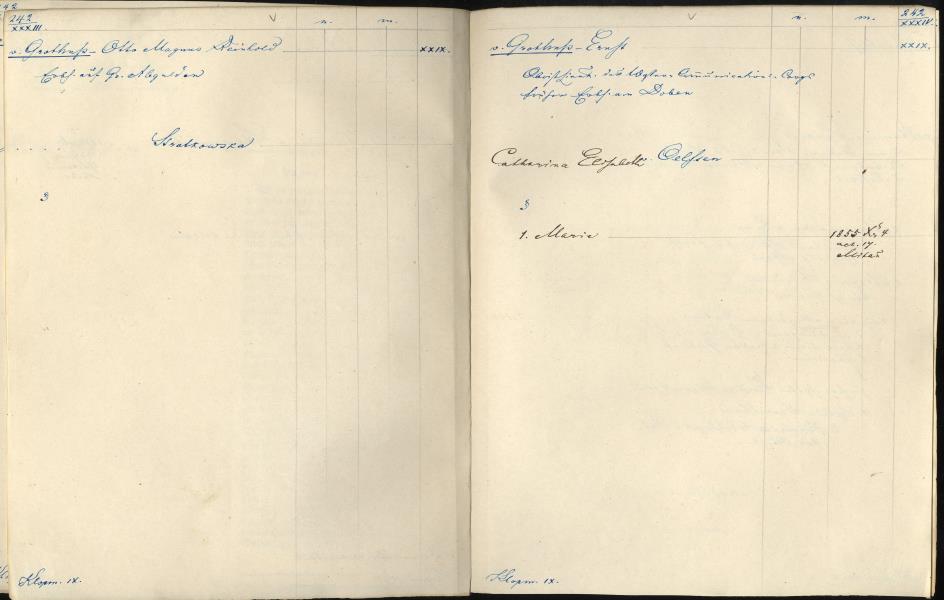 242
XXXIII.
n. m.
v. Grotthuß - Otto Magnus Reinhold XXIX.
Erbh. auf Gr. Abgulden
. . . . Stratkowska
3
Klopm. IX.
n. m. 242
XXXIV.
v. Grotthuß - Ernst XXIX.
Obristlieut. des Communications-Corps
früher Erbh. von Doben
Catharina Elisabeth Oelssen
3
1. Marie 1855 Xbr 4
aet. 17.
Mitau
Klopm. IX.